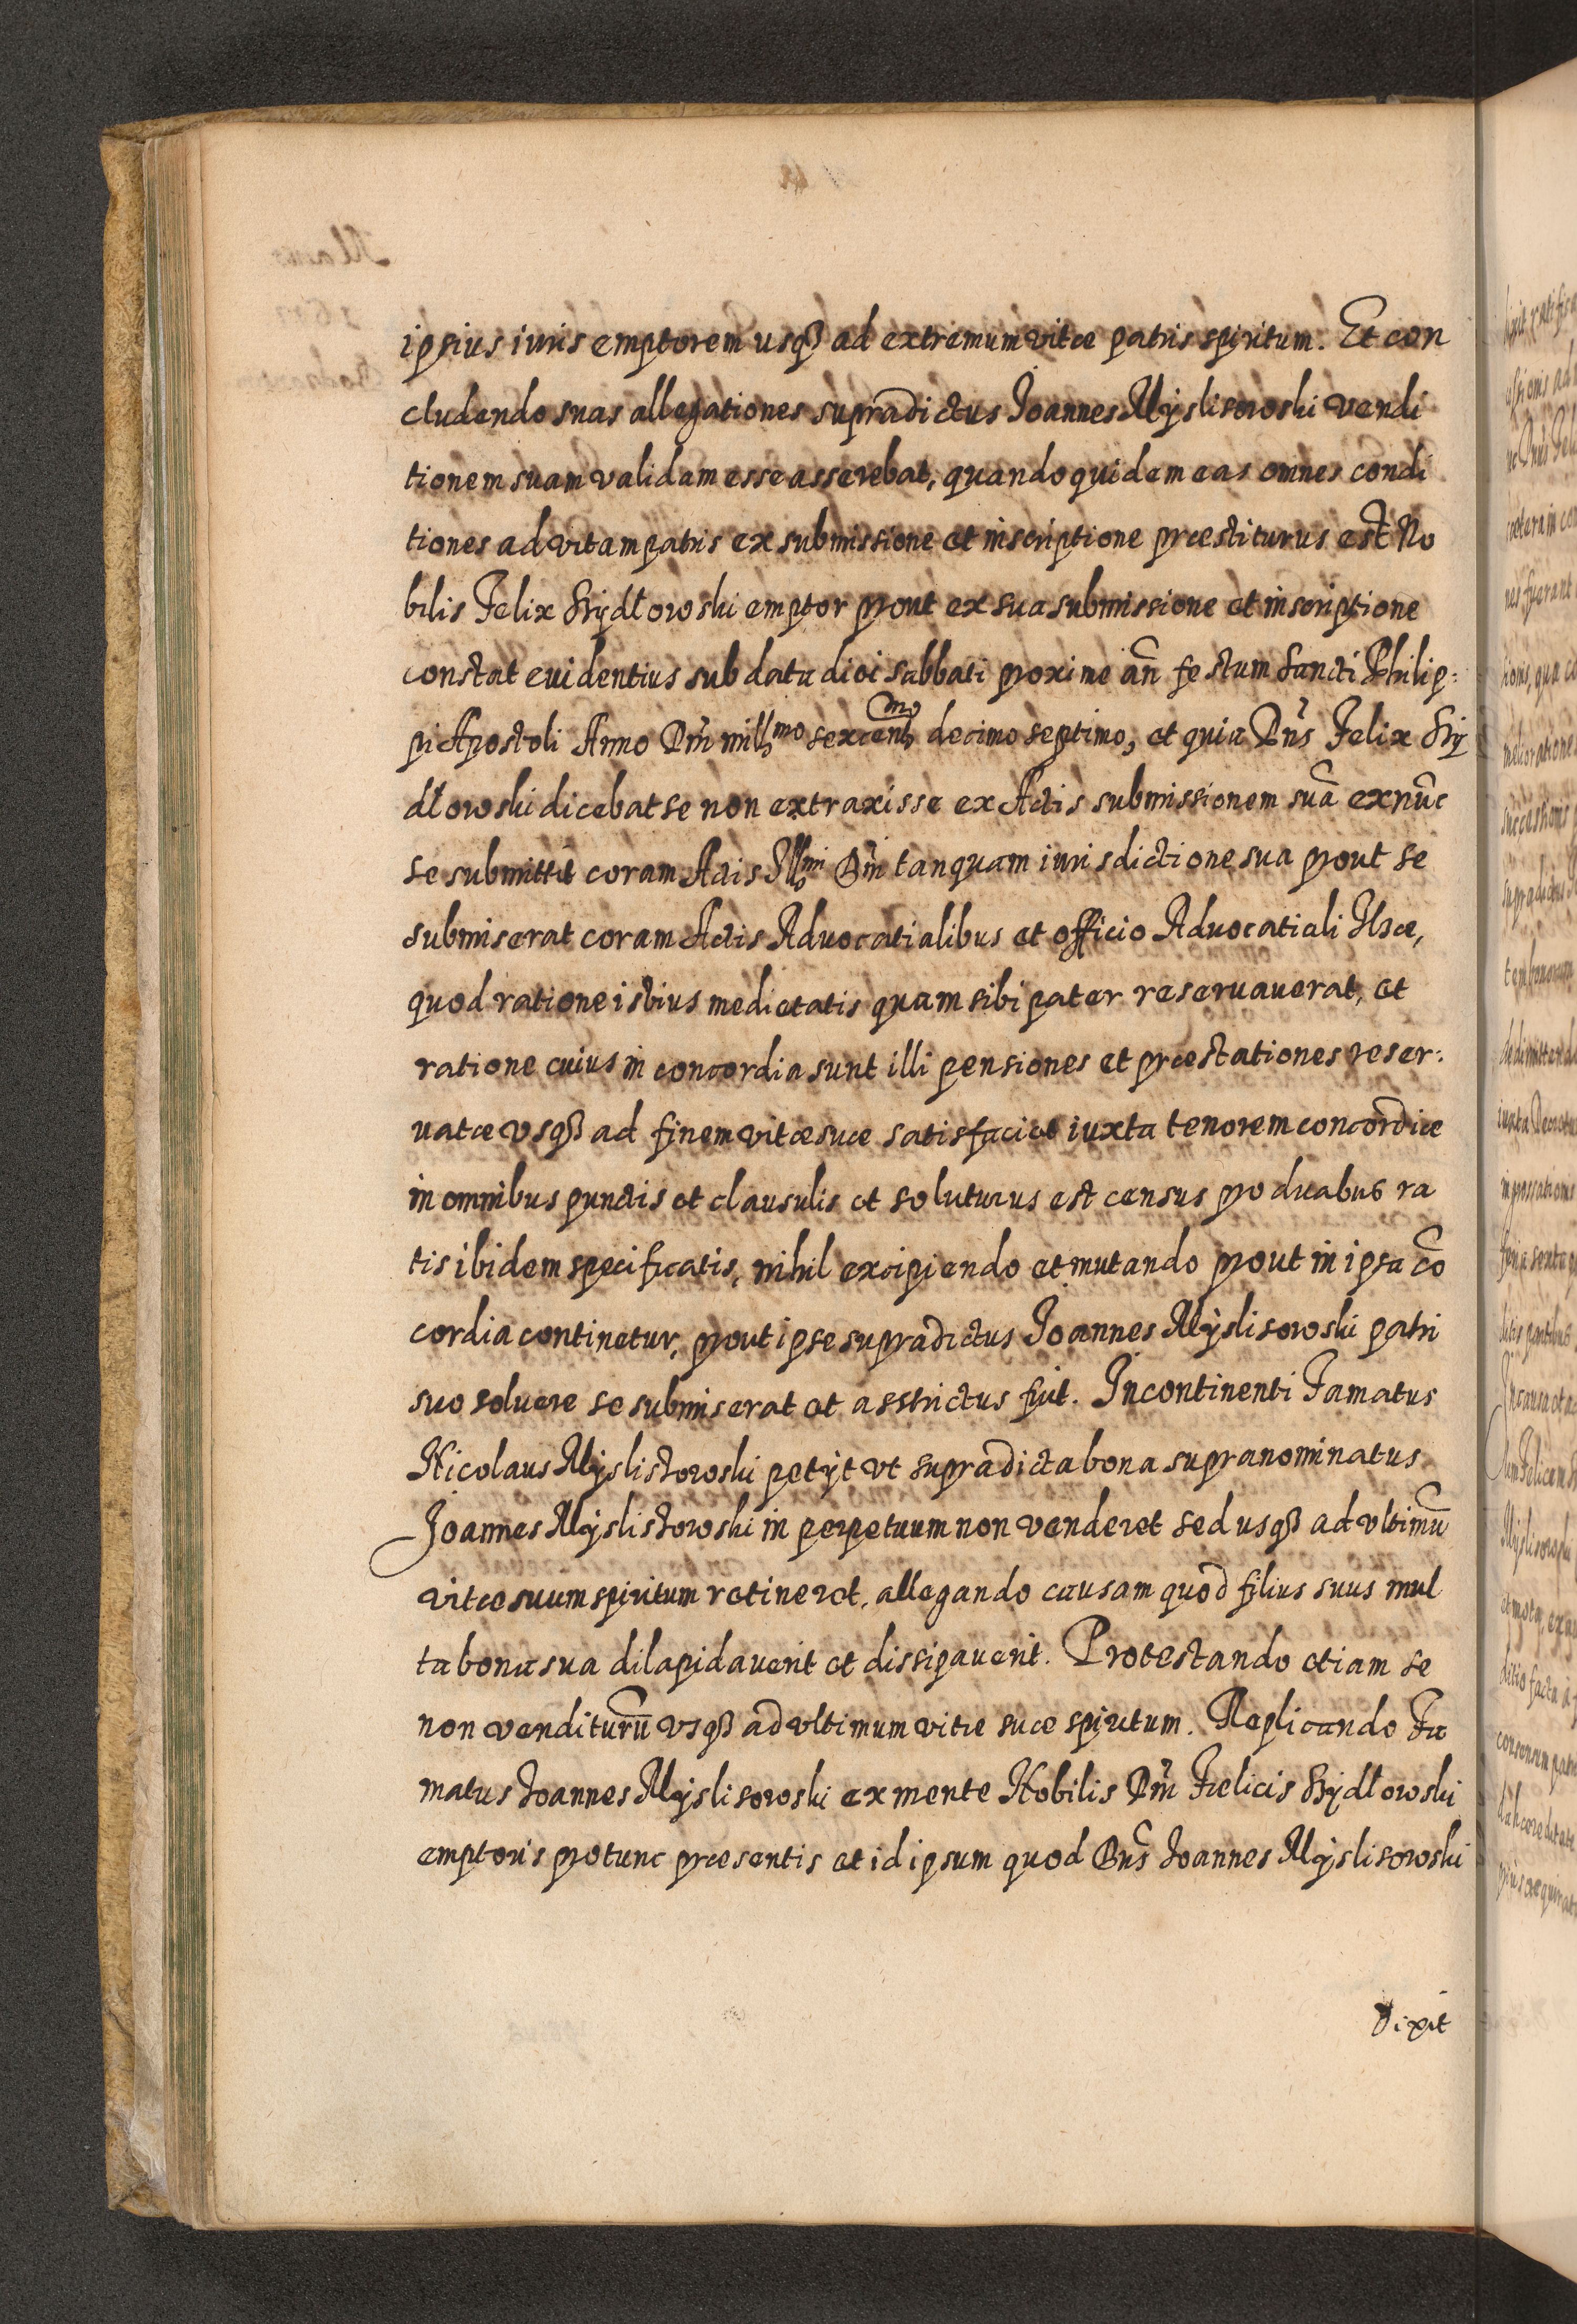 ipsius iuris emptorem usqꝫ ad extremum vitæ patris spiritum. Et con
cludendo suas allegationes supradictus Joannes Mÿslisowski vendi
tionem suam validam esse asserebat, quandoquidem eas omnes condi
tiones ad vitam patris ex submissione et inscriptione præstiturus est No
bilis Felix Szÿdłowski emptor prout ex sua submissione et inscriptione
constat euidentius sub datu diei sabbati proxime añ festum Sancti Philip:
pi Apostoli Anno Dni millmo sexcentmo decimo septimo, et quia Dns Felix Szÿ
dłowski dicebat se non extraxisse ex Actis submissionem suā ex nūc
se submittit coram Actis Illmi Dni tanquam iurisdictione sua prout se
submiserat coram Actis Aduocatialibus et officio Aduocatiali Ilsæ,
quod ratione istius medietatis quam sibi pater reseruauerat, et
ratione cuius in concordia sunt illi pensiones et præstationes reser:
uatæ vsqꝫ ad finem vitæ suæ satisfaciet iuxta tenorem concordiæ
in omnibus punctis et clausulis et soluturus est census pro duabus ra
tis ibidem specificatis, nihil excipiendo et mutando prout in ipsa cō
cordia continetur, prout ipse supradictus Joannes Mÿslisowski patri
suo soluere se submiserat et asstrictus fuit. Incontinenti Famatus
Nicolaus Mÿslistowski petÿt vt supradicta bona supranominatus
Joannes Mÿslistowski in perpetuum non venderet sed usqꝫ ad vltimū
vitæ suum spiritum retineret, allegando causam quod filius suus mul
ta bona sua dilapidauerit et dissipauerit. Protestando etiam se
non venditurū vsqꝫ ad vltimum vitæ suæ spiritum. Replicando Fa
matus Joannes Mÿslisowski ex mente Nobilis Dni Fælicis Szÿdłowski
emptoris protunc præsentis et id ipsum quod Dns Joannes Mÿslisowski
dixit